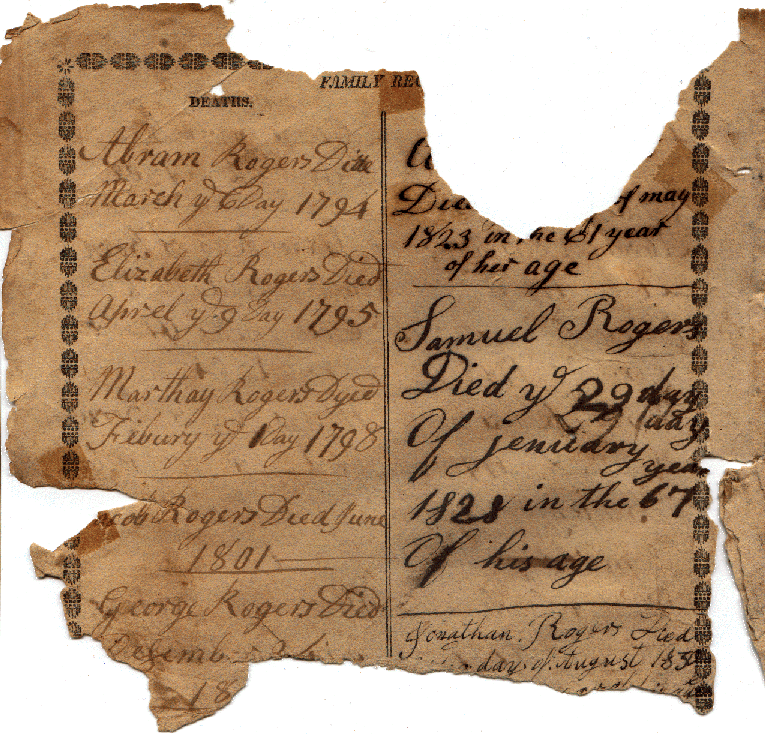 FAMILY REC
DEATHS.
Abram Rogers Died
March ye 6 Day 1794
Elizabeth Rogers Died
Aprel ye 9 Day 1795
Marthay Rogers Dyed
Febury ye 1 Day 1798
acob Rogers Died June
1801
George Rogers Died
Desemb
18
of may
1823 in the 61 year
of her age
Samuel Rogers
Died ye 29 day
day
Of jenuary
year
1828 in the 67
Of his age
Jonathan Rogers Died
day of August 183